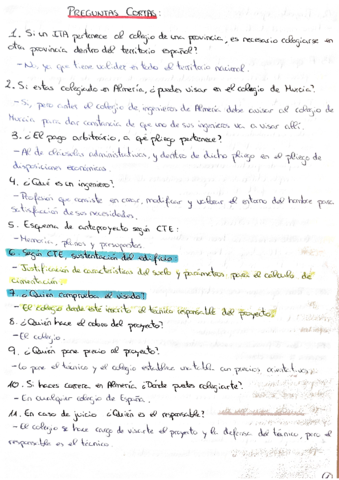 PREGUNTAS CORTAS:
1. Si un ITA pertenece al colegio de una provincia, es necesario colegiarse en
otra provincia dentro del territorio español?
- No, ya que tiene validez en todo el territorio nacional.
2. Si estas colegiado en Almería, ¿puedes visar en el colegio de Murcia?
- Si, pero antes el colegio de ingenieros de Almería debe avisar al colegio de
Murcia para dar constancia de que uno de sus ingenieros va a visar allí.
3. ¿El pago arbitrario, a qué pliego pertenece?
- Al de cláusulas administrativas, y dentro de dicho pliego en el pliego de
disposiciones económicas.
4. ¿Qué es un ingeniero?
- Profesión que consiste en crear, modificar y utilizar el entorno del hombre para
satisfacción de sus necesidades.
5. Esquema de anteproyecto según CTE:
- Memoria, planos y presupuestos.
6. Según CTE, sustentación del edificio:
- Justificación de características del suelo y parámetros para el cálculo de
cimentación.
7. ¿Quién comprueba el visado?
- El colegio donde este inscrito el técnico responsable del proyecto.
8. ¿Quién hace el cobro del proyecto?
- El colegio.
9. ¿Quién pone precio al proyecto?
- Lo pone el técnico y el colegio establece una tabla con precios orientativos.
10. Si haces carrera en Almería ¿Dónde puedes colegiarte?
- En cualquier colegio de España.
11. En caso de juicio ¿Quién es el responsable?
- El colegio se hace cargo de visarte el proyecto y la defensa del técnico, pero el
responsable es el técnico.